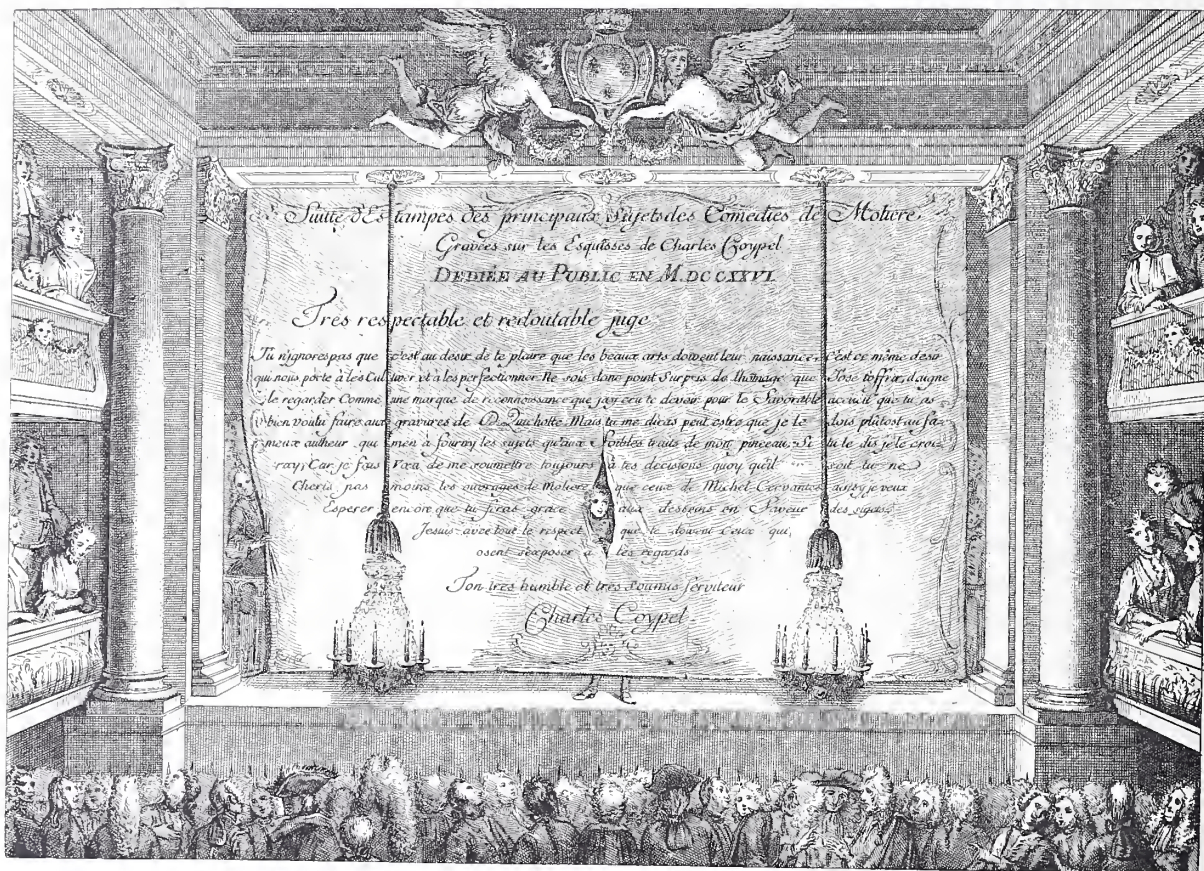 Suitte d'Estampes des principaux Sujets des Comedies de Moliere
Gravées sur les Esquisses de Charles Coypel
DEDIÉE AU PUBLIC EN M.DCCXXVI.
Tres respectable et redoutable juge
Tu n'ignores pas que c'est au desir de te plaire que les beaux arts doivent leur naissance, c'est ce même desir
qui nous porte à les Cultiver et à les perfectionner. Ne sois donc point Surpris de l'homage que j'ose t'offrir, daigne
le regarder Comme une marque de reconnoissance que j'ay cru te devoir pour le Favorable accueil que tu as
bien voulu faire aux gravures de D. Quichotte. Mais tu me diras peut estre que je le dois plûtost au fa-
meux autheur qui m'en a fourny les sujets qu'aux Foibles traits de mon pinceau. Si tu le dis je le croi-
ray, Car je fais Vœu de me soumettre toujours à tes decisions quoy qu'il en soit tu ne
Cheris pas moins les ouvrages de Moliere que ceux de Michel Cervantes ainsy je veux
Esperer encore que tu feras grace aux desseins en Faveur des sujets.
Je suis avec tout le respect que te doivent Ceux qui
osent s'exposer à tes regards
Ton tres humble et tres soumis serviteur
Charles Coypel